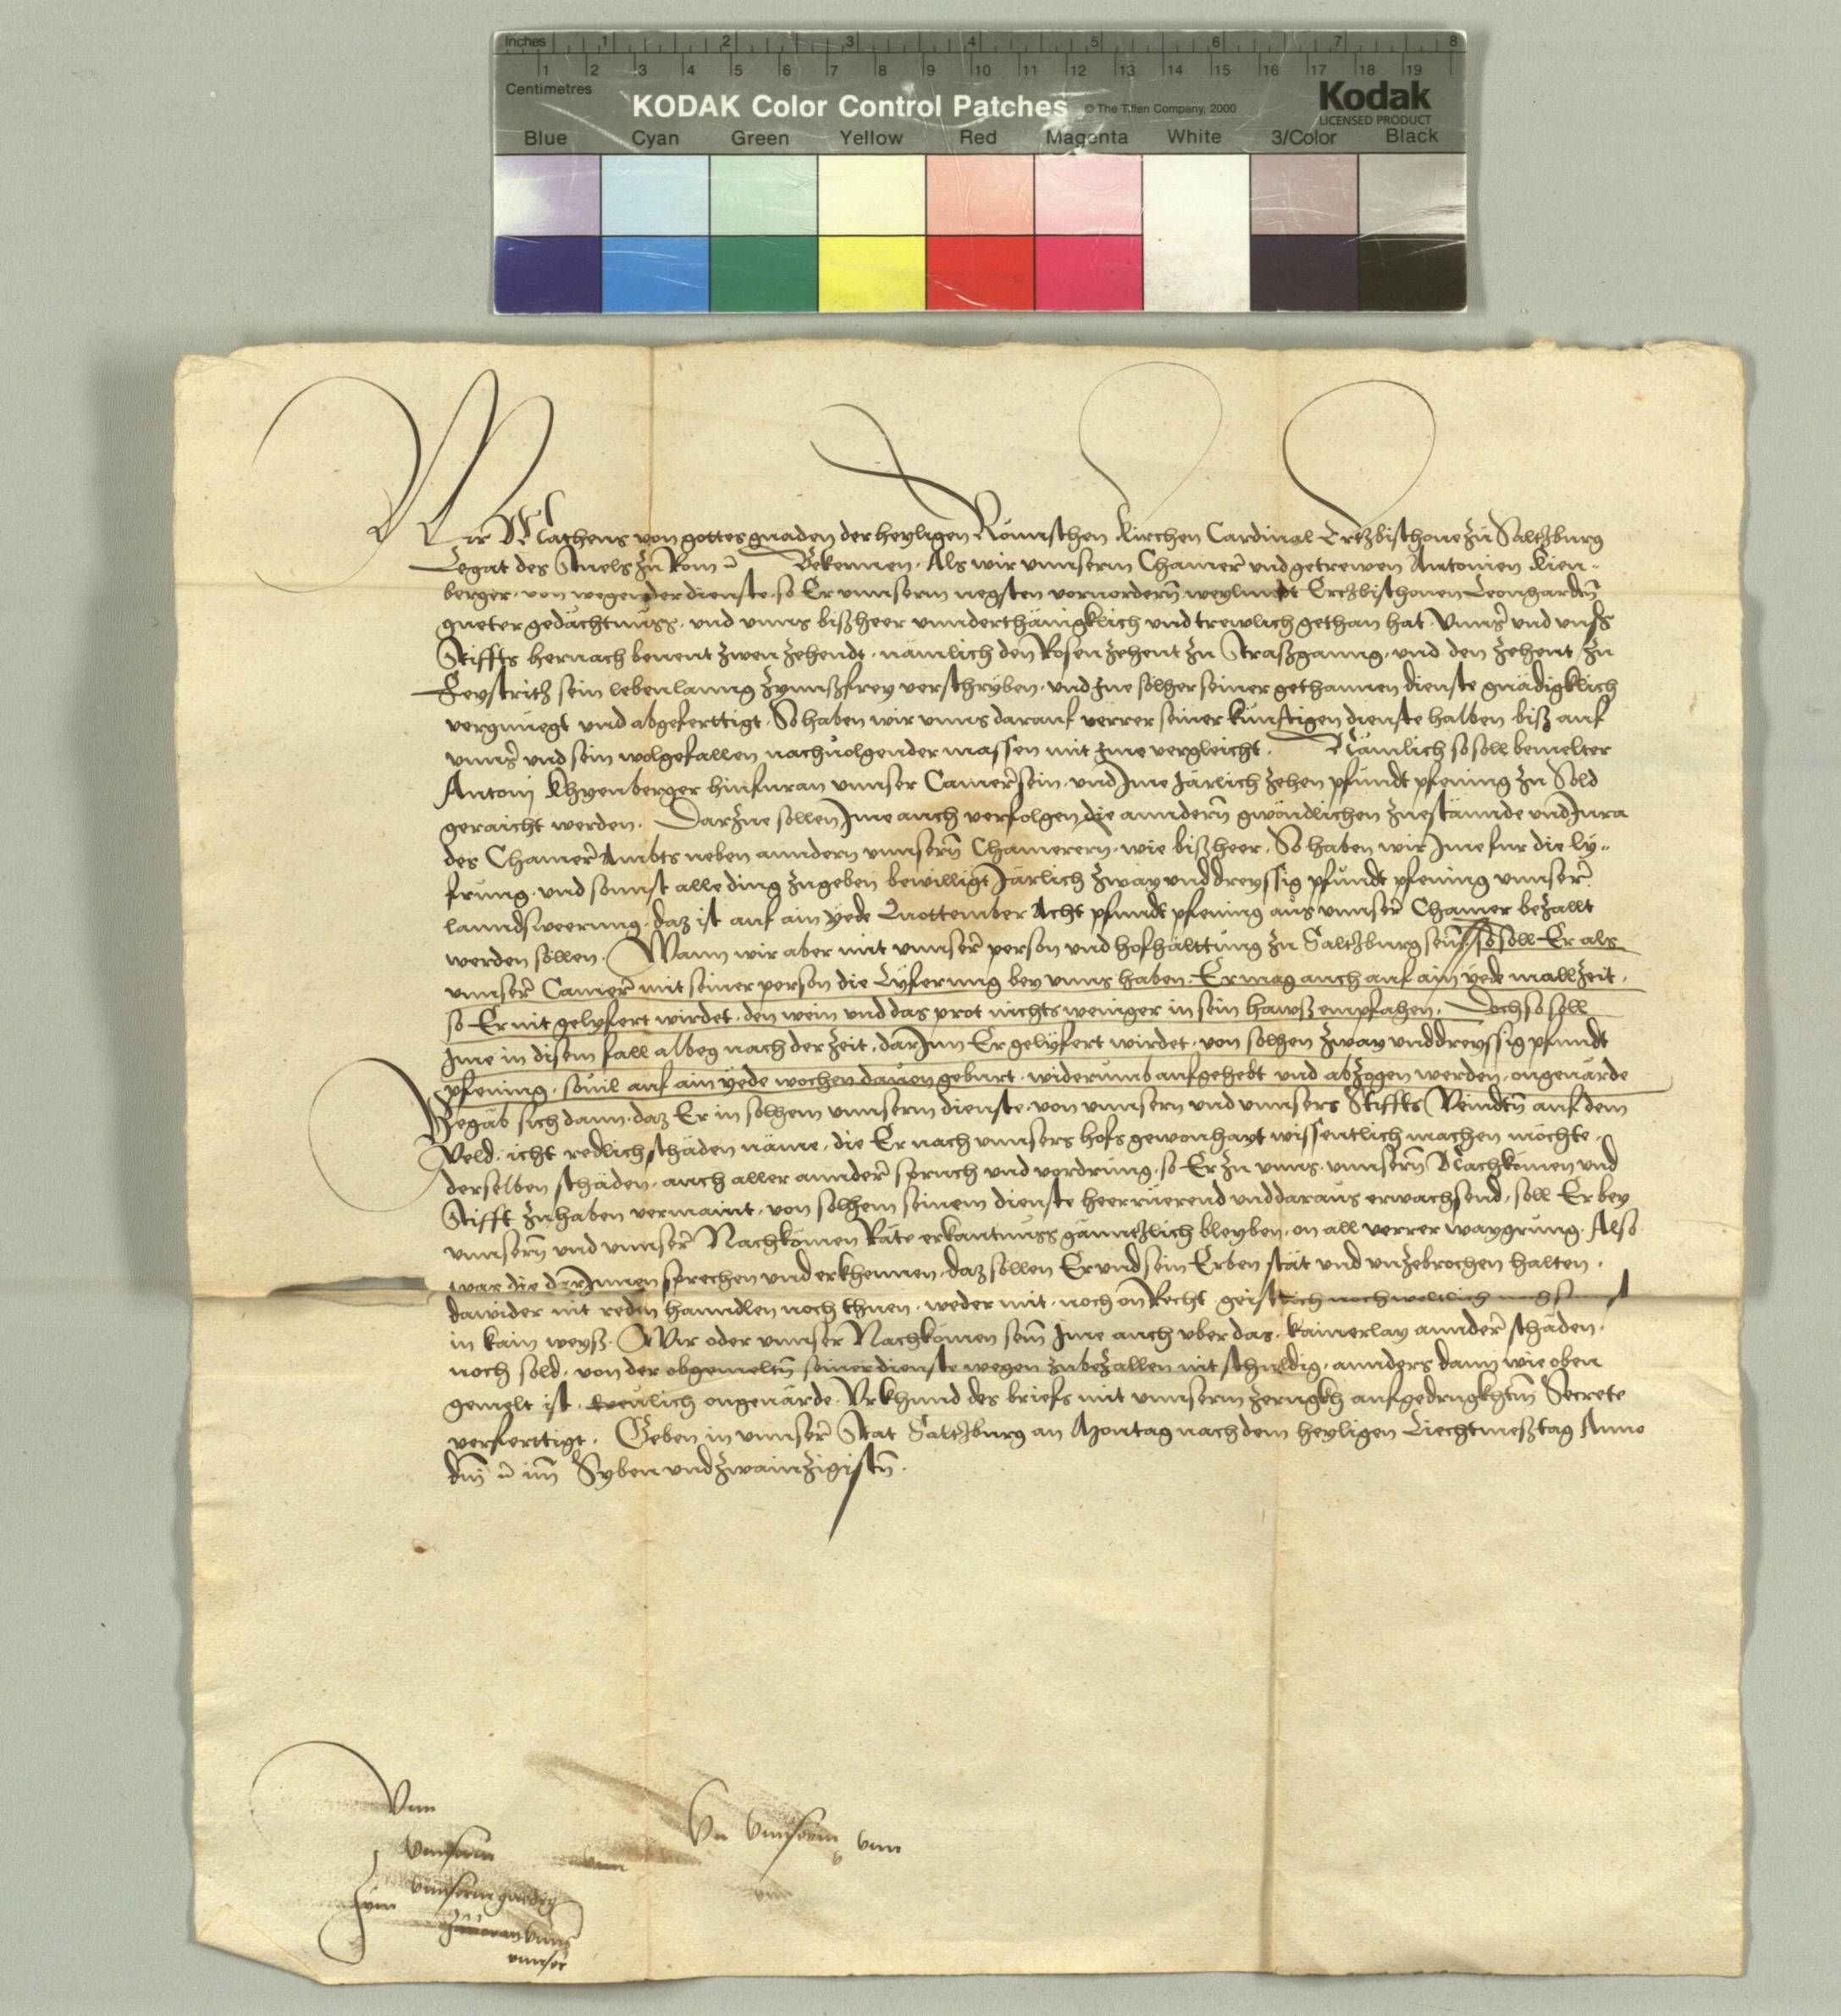 Inches 1 2 3 4 5 6 7 8
Centimetres 1 2 3 4 5 6 7 8 9 10 11 12 13 14 15 16 17 18 19
KODAK Color Control Patches © The Tiffen Company, 2000 Kodak
LICENSED PRODUCT
Blue Cyan Green Yellow Red Magenta White 3/Color Black
Wir Matheus von gottes gnaden der heyligen Römischen Kirchen Cardinal Ertzbischoue zu Saltzburg
Legat des Stuels zu Rom Bekennen. Als wir vnnserm Chamer̄ und getrewen Antonien Kien-
berger. von wegen der dienste. so Er vnnserm negsten voruordern̄ weylundt Ertzbischouen Leonharden̄
gueter gedächtnuss. und vnns bißheer vnnderthänigklich und trewlich gethan hat. Vnnser̄ und vnnss
Stiffts hernach benent zwen zehendt. nämlich den Rosenzehent zu Straßganng. und den zehent zu
Feystritz sein lebenlanng zynnßfrey verschryben. und Jne solher seiner gethannen dienste gnädigklich
vergnuegt und abgeferttigt. So haben wir vnns darauf verrer seiner künftigen dienste halben biß auf
vnnser̄ und sein wolgefallen nachuolgender massen mit Jme vergleicht. Nämlich so soll bemelter
Antonj Khyenberger hinfuran vnnser Camer̄ sein. und Jme Järlich zehen pfundt pfening zu Sold
geraicht werden. Darzue sollen Jme auch verfolgen die anndern̄ gwöndlichen zuestännde und Jura
des Chamer̄ Ambts neben anndern vnnsern̄ Chamerern. wie bißheer. So haben wir Jme fur die ly-
frung. und sonnst alle ding zugeben bewilligt Järlich zway unddreyssig pfundt pfening vnnser̄
lanndsweerung. daz ist auf ain yede Quottember Acht pfundt pfening aus vnnser̄ Chamer bezallt
werden sollen. Wann wir aber mit vnnser̄ person und hofhalttung zu Saltzburg sein̄. so soll Er als
vnnser̄ Camer̄ mit seiner person die Lyferung bey vnns haben. Er mag auch auf ain yede mallzeit.
so Er nit gelyfert wirdet. den wein und das prot nichts weniger in sein hawß empfahen. Doch so soll
Jme in disem fall albeg nach der zeit. darJnn Er gelyfert wirdet. von solhen zway unddreyssig pfundt
pfening. souil auf ain yede wochen dauon geburt. widerumb aufgehebt und abzogen werden. ongeuärde
Begäb sich dann. daz Er in solhem vnnserm dienste. von vnnsern und vnnsers Stiffts Veindtn̄ auf dem
Veld. icht redlich schäden näme. die Er nach vnnsers hofs gewonhayt wissentlich machen möchte.
derselben schäden. auch aller annder̄ spruch und vordrung. so Er zu vnns. vnnsern̄ Nachkomen und
Stifft zuhaben vermaint. von solhem seinem dienste heerruerend und daraus erwachsend. soll Er bey
vnnsern̄ und vnnser̄ Nachkomen Räte erkantnuss gänntzlich bleyben. on all verrer waygrung. Also
was die darJnnen sprechen und erkhennen. daz sollen Er und sein Erben stät und vnzebrochen halten.
dawider nit reden hanndlen noch thuen. weder mit. noch on Recht geistlich noch weltlich noch sunst
in kain weyß. Wir oder vnnser Nachkomen sein̄ Jme auch vber das. kainerlay annder̄ schäden.
noch sold. von der obgemeltn̄ seiner dienste wegen zubezallen nit schuldig. annders dann wie oben
gemelt ist. treulich ongeuärde. Vrkhund des briefs mit vnnserm zerugkh aufgedrugkhtm̄ Secrete
verferttigt. Geben in vnnser̄ Stat Saltzburg an Montag nach dem heyligen Liechtmeßtag Anno
dm̄ im̄ Syben und zwainzigistn̄.
Vnn
Vnnserm
vnn
Vnnserm vnn
vnnserm gnedig
vnns
vnnser